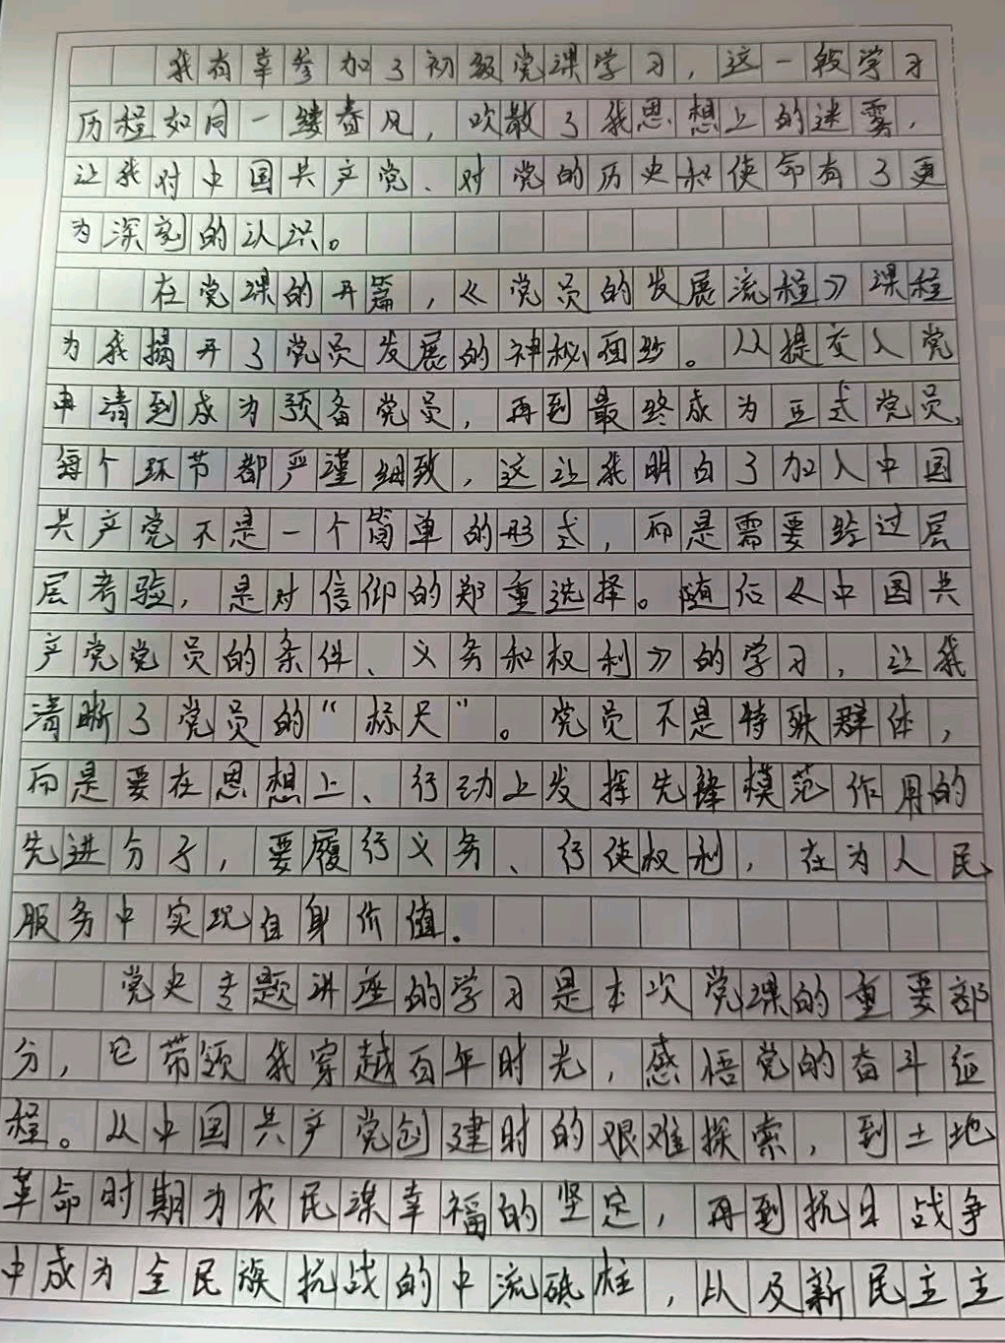 我有幸参加了初级党课学习，这一段学习
历程如同一缕春风，吹散了我思想上的迷雾，
让我对中国共产党、对党的历史和使命有了更
为深刻的认识。
在党课的开篇，《党员的发展流程》课程
为我揭开了党员发展的神秘面纱。从提交入党
申请到成为预备党员，再到最终成为正式党员，
每个环节都严谨细致，这让我明白了加入中国
共产党不是一个简单的形式，而是需要经过层
层考验，是对信仰的郑重选择。随后《中国共
产党党员的条件、义务和权利》的学习，让我
清晰了党员的“标尺”。党员不是特殊群体，
而是要在思想上、行动上发挥先锋模范作用的
先进分子，要履行义务、行使权利，在为人民
服务中实现自身价值.
党史专题讲座的学习是本次党课的重要部
分，它带领我穿越百年时光，感悟党的奋斗征
程。从中国共产党创建时的艰难探索，到土地
革命时期为农民谋幸福的坚定，再到抗日战争
中成为全民族抗战的中流砥柱，以及新民主主